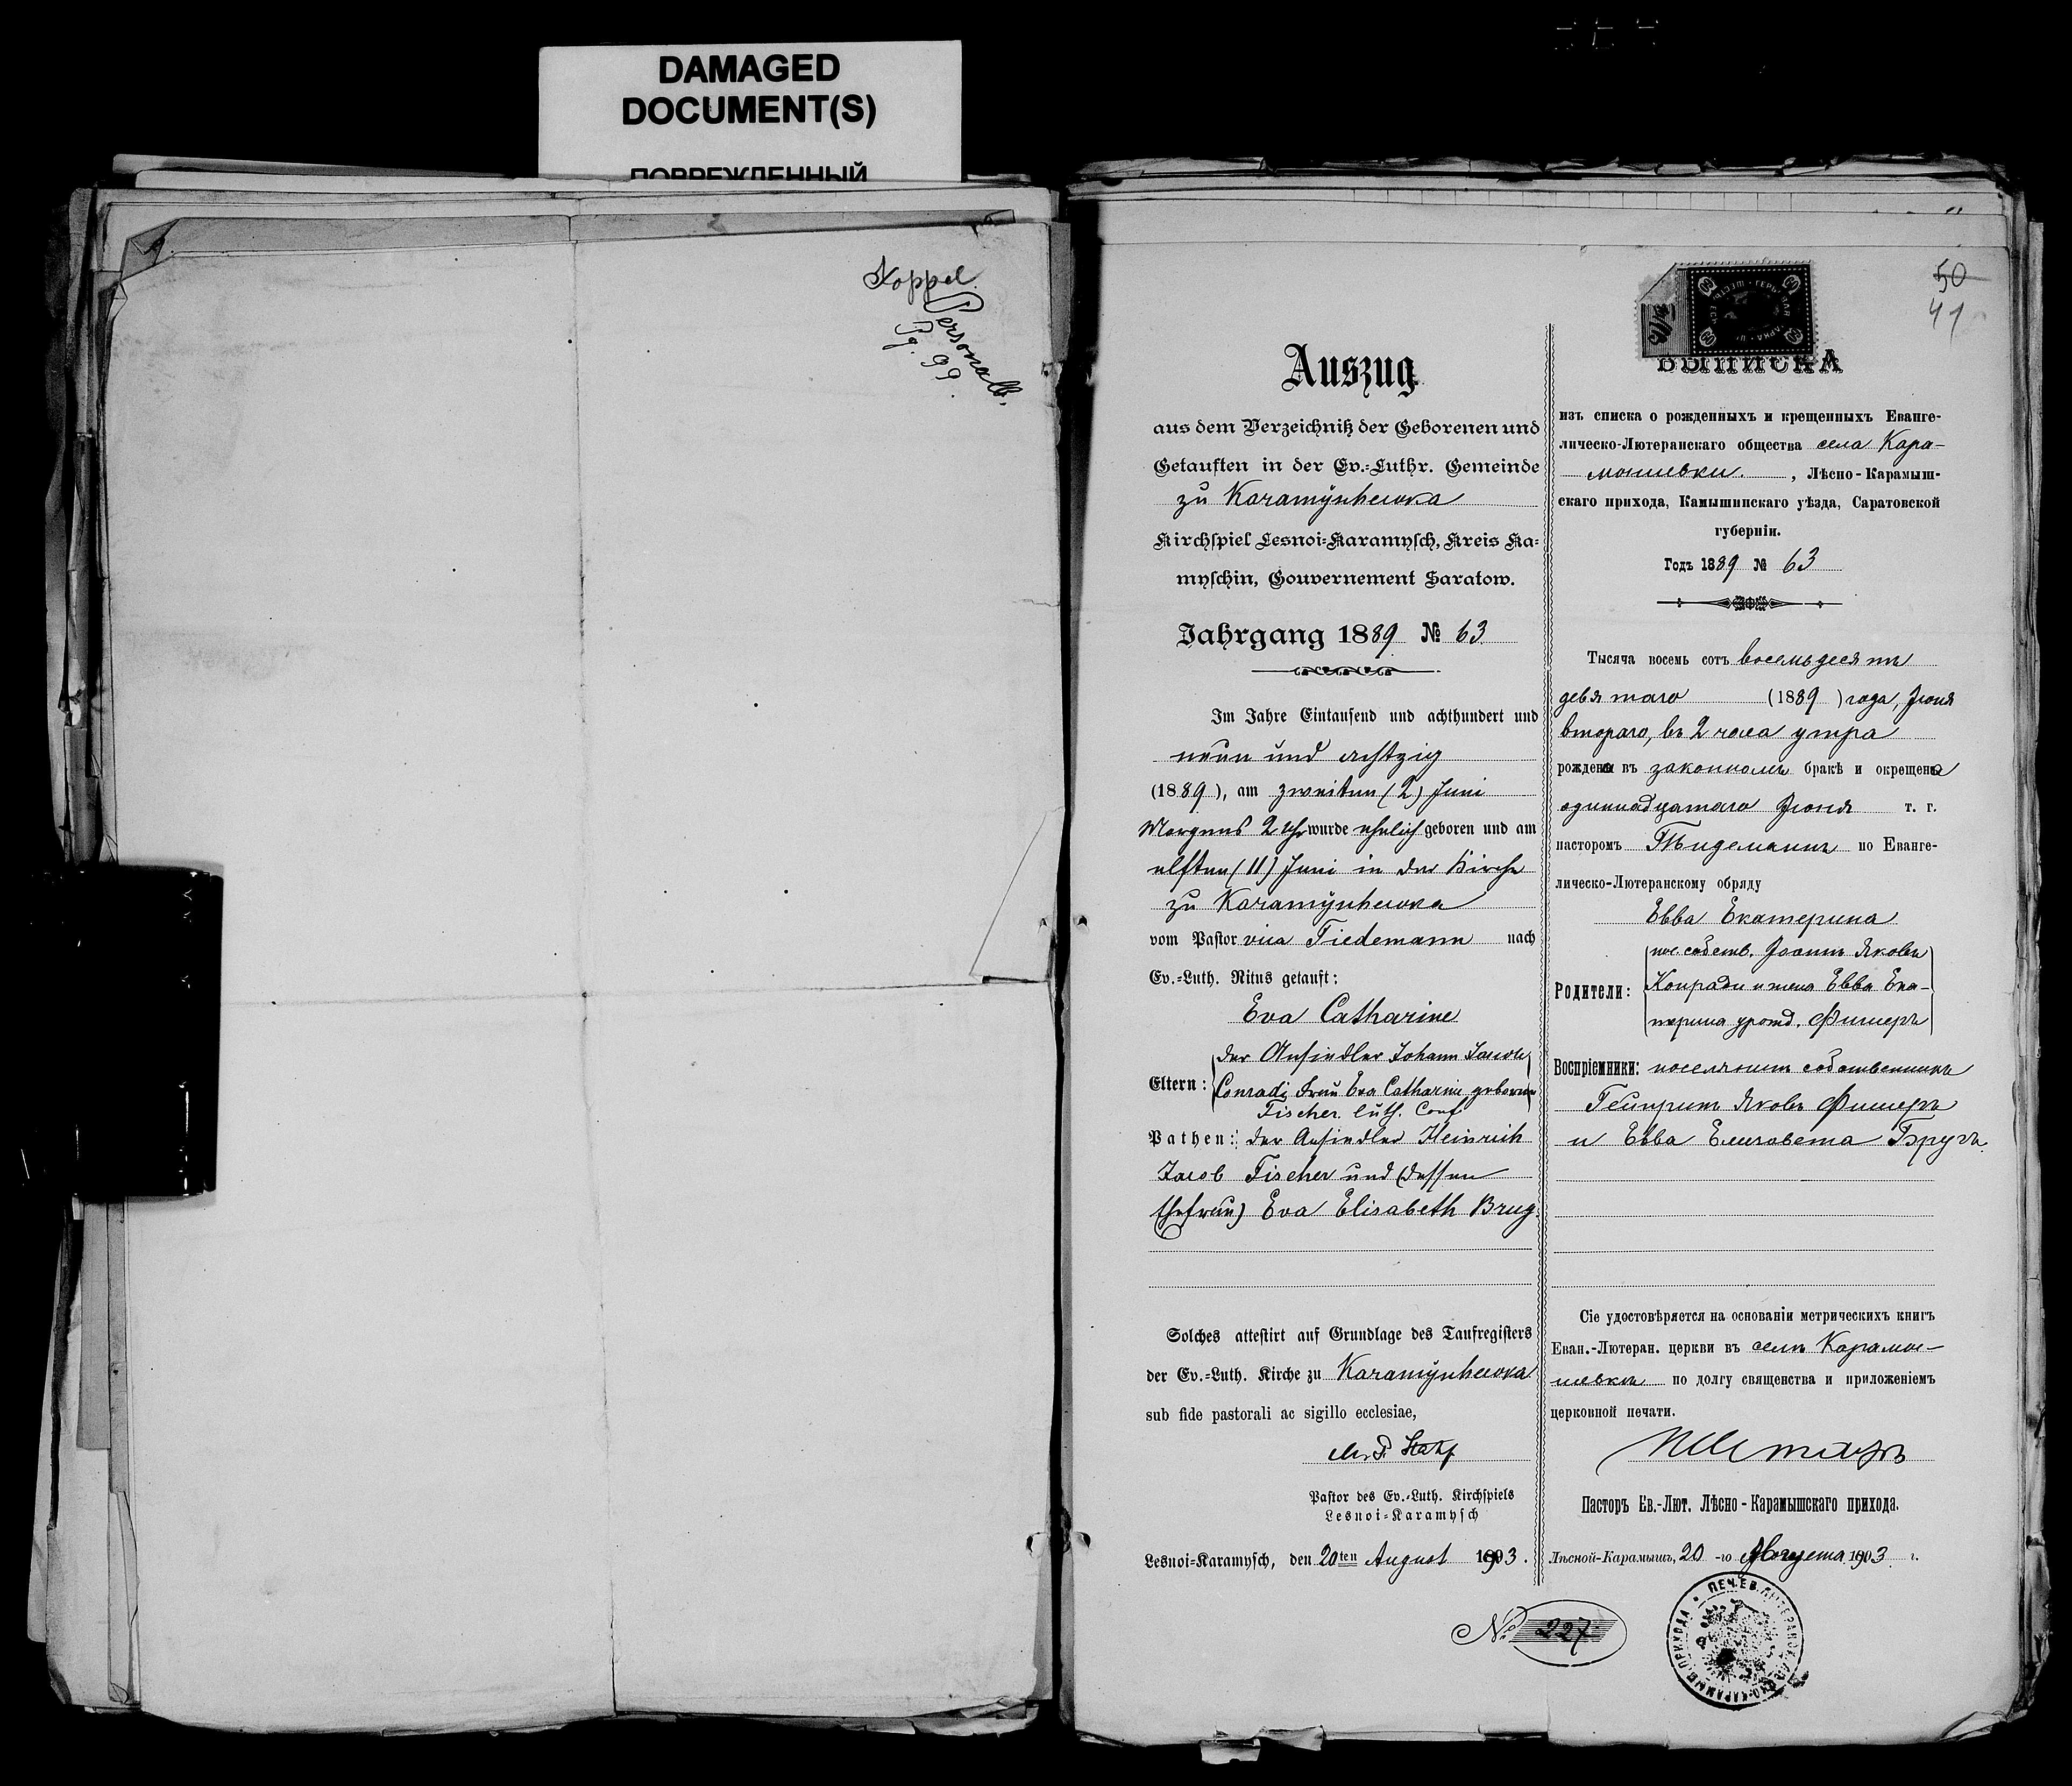 DAMAGED
DOCUMENT(S)
ПОВРЕЖДЕННЫЙ
Koppel.
Personalb.
Pg. 99.
50
41
Auszug
aus dem Verzeichniß der Geborenen und
Getauften in der Ev.-Luthr. Gemeinde
zu Karamyschewka
Kirchspiel Lesnoi-Karamysch, Kreis Ka-
myschin, Gouvernement Saratow.
Jahrgang 1889 № 63
Im Jahre Eintausend und achthundert und
neun und achtzig
(1889), am zweiten (2) Juni
Morgens 2 Uhr wurde ehelich geboren und am
elften (11) Juni in der Kirche
zu Karamyschewka
vom Pastor vica Tiedemann nach
Ev.-Luth. Ritus getauft:
Eva Catharine
Eltern: der Ansiedler Johann Jacob
Conradi Frau Eva Catharine geborene
Fischer luth. Conf
Pathen: der Ansiedler Heinrich
Jacob Fischer und (dessen
Ehefrau) Eva Elisabeth Brug.
Solches attestirt auf Grundlage des Taufregisters
der Ev.-Luth. Kirche zu Karamyschewka
sub fide pastorali ac sigillo ecclesiae,
Pastor des Ev.-Luth. Kirchspiels
Lesnoi-Karamysch
Lesnoi-Karamysch, den 20ten August 1903.
№ 227
ВЫПИСКА
изъ списка о рожденныхъ и крещенныхъ Еванге-
лическо-Лютеранскаго общества села Кара-
мышевки, Лѣсно-Карамыш-
скаго прихода, Камышинскаго уѣзда, Саратовской
губерніи.
Годъ 1889 № 63
Тысяча восемь сотъ восемьдесятъ
девятаго (1889) года, Іюня
втораго, въ 2 часа утра
рождена въ законномъ бракѣ и окрещена
одиннадцатаго Іюня т. г.
пасторомъ Тидеманъ по Еванге-
лическо-Лютеранскому обряду
Евва Екатерина
пос. собств. Іоганъ Яковъ
Родители: Конради и жена Евва Ека-
терина урожд. Фишеръ
Воспріемники: поселянинъ собственникъ
Гейнрихъ Яковъ Фишеръ
и Евва Елизавета Бругъ.
Сіе удостовѣряется на основаніи метрическихъ книгъ
Еван.-Лютеран. церкви въ селѣ Карамы-
шевкѣ по долгу священства и приложеніемъ
церковной печати.
Пасторъ Ев.-Лют. Лѣсно-Карамышскаго прихода.
Лѣсной-Карамышъ, 20-го Августа 1903 г.